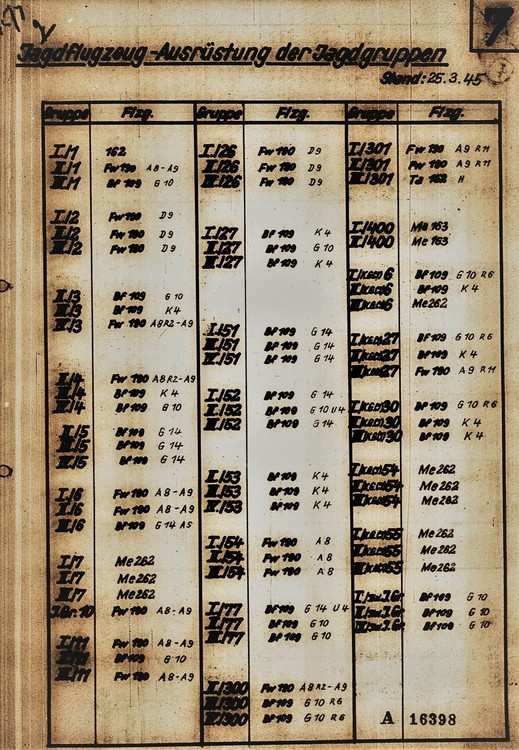 7
Jagdflugzeug-Ausrüstung der Jagdgruppen
Stand: 25.3.45
Gruppe Flzg.
I./1 162
II./1 Fw 190 A8-A9
III./1 Bf 109 G10
I./2 Fw 190 D9
II./2 Fw 190 D9
III./2 Fw 190 D9
I./3 Bf 109 G10
II./3 Bf 109 K4
III./3 Fw 190 A8R2-A9
I./4 Fw 190 A8R2-A9
III./4 Bf 109 K4
IV./4 Bf 109 G10
I./5 Bf 109 G14
III./5 Bf 109 G14
IV./5 Bf 109 G14
I./6 Fw 190 A8-A9
II./6 Fw 190 A8-A9
III./6 Bf 109 G14 AS
I./7 Me 262
II./7 Me 262
III./7 Me 262
J.Gr. 10 Fw 190 A8-A9
I./11 Fw 190 A8-A9
II./11 Bf 109 G10
III./11 Fw 190 A8-A9
Gruppe Flzg.
I./26 Fw 190 D9
II./26 Fw 190 D9
III./26 Fw 190 D9
I./27 Bf 109 K4
II./27 Bf 109 G10
III./27 Bf 109 K4
I./51 Bf 109 G14
III./51 Bf 109 G14
IV./51 Bf 109 G14
I./52 Bf 109 G14
II./52 Bf 109 G10 U4
III./52 Bf 109 G14
I./53 Bf 109 K4
III./53 Bf 109 K4
IV./53 Bf 109 K4
I./54 Fw 190 A8
II./54 Fw 190 A8
III./54 Fw 190 A8
I./77 Bf 109 G14 U4
II./77 Bf 109 G10
III./77 Bf 109 G10
II./300 Fw 190 A8R2-A9
III./300 Bf 109 G10 R6
IV./300 Bf 109 G10 R6
Gruppe Flzg.
I./301 Fw 190 A9 R11
II./301 Fw 190 A9 R11
III./301 Ta 152 H
I./400 Me 163
II./400 Me 163
I./KG(J)6 Bf 109 G10 R6
II./KG(J)6 Bf 109 K4
III./KG(J)6 Me 262
I./KG(J)27 Bf 109 G10 R6
II./KG(J)27 Bf 109 K4
III./KG(J)27 Fw 190 A9 R11
I./KG(J)30 Bf 109 G10 R6
II./KG(J)30 Bf 109 K4
III./KG(J)30 Bf 109 K4
I./KG(J)54 Me 262
II./KG(J)54 Me 262
III./KG(J)54 Me 262
I./KG(J)55 Me 262
II./KG(J)55 Me 262
III./KG(J)55 Me 262
Bf 109 G10
Bf 109 G10
Bf 109 G10
A 16398